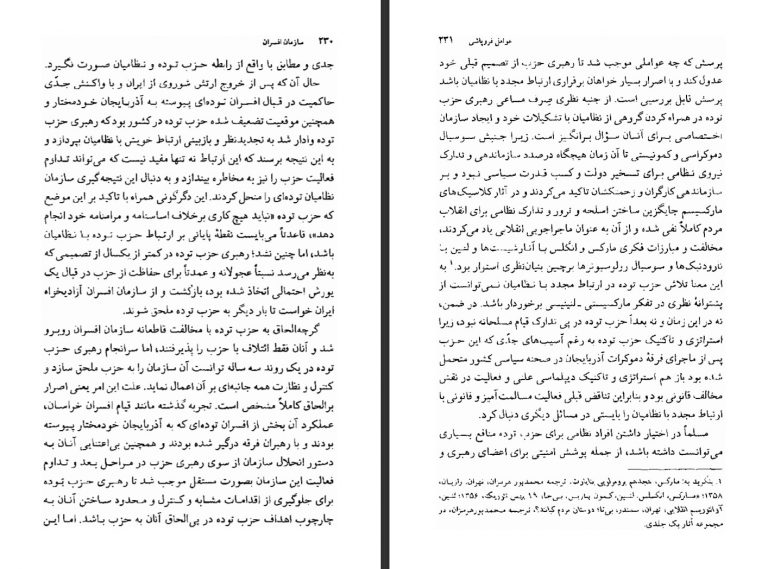 ۲۳۰ سازمان افسران
جدی و مطابق با واقع از رابطه حزب توده و نظامیان صورت نگیرد.
حال آن که پس از خروج ارتش شوروی از ایران و با واکنش جدّی
حاکمیت در قبال افسران توده‌ای پیوسته به آذربایجان خودمختار و
همچنین موقعیت تضعیف شده حزب توده در کشور بود که رهبری حزب
توده وادار شد به تجدیدنظر و بازبینی ارتباط خویش با نظامیان بپردازد و
به این نتیجه برسند که این ارتباط نه تنها مفید نیست که می‌تواند تداوم
فعالیت حزب را نیز به مخاطره بیندازد و به دنبال این نتیجه‌گیری سازمان
نظامیان توده‌ای را منحل کردند. این دگرگونی همراه با تاکید بر این موضع
که حزب توده «نباید هیچ کاری برخلاف اساسنامه و مرامنامه خود انجام
دهد»، قاعدتاً می‌بایست نقطهٔ پایانی بر ارتباط حزب توده با نظامیان
باشد، اما چنین نشد؛ رهبری حزب توده در کمتر از یکسال از تصمیمی که
به‌نظر می‌رسد نسبتاً عجولانه و عمدتاً برای حفاظت از حزب در قبال یک
یورش احتمالی اتخاذ شده بود، بازگشت و از سازمان افسران آزادیخواه
ایران خواست تا بار دیگر به حزب توده ملحق شوند.
گرچه‌الحاق به حزب توده با مخالفت قاطعانه سازمان افسران روبرو
شد و آنان فقط ائتلاف با حزب را پذیرفتند، اما سرانجام رهبری حزب
توده در یک روند سه ساله توانست آن سازمان را به حزب ملحق سازد و
کنترل و نظارت همه جانبه‌ای بر آن اعمال نماید. علت این امر یعنی اصرار
برالحاق کاملاً مشخص است. تجربه گذشته مانند قیام افسران خراسان،
عملکرد آن بخش از افسران توده‌ای که به آذربایجان خودمختار پیوسته
بودند و با رهبران فرقه درگیر شده بودند و همچنین بی‌اعتنایی آنان به
دستور انحلال سازمان از سوی رهبری حزب در مراحل بعد و تداوم
فعالیت این سازمان بصورت مستقل موجب شد تا رهبری حزب توده
برای جلوگیری از اقدامات مشابه و کنترل و محدود ساختن آنان به
چارچوب اهداف حزب توده در پی‌الحاق آنان به حزب باشد. اما این
عوامل فروپاشی ۲۳۱
پرسش که چه عواملی موجب شد تا رهبری حزب از تصمیم قبلی خود
عدول کند و با اصرار بسیار خواهان برقراری ارتباط مجدد با نظامیان باشد
پرسش قابل بررسی است. از جنبه نظری صِرف مساعی رهبری حزب
توده در همراه کردن گروهی از نظامیان با تشکیلات خود و ایجاد سازمان
اختصاصی برای آنان سؤال برانگیز است. زیرا جنبش سوسیال
دموکراسی و کمونیستی تا آن زمان هیچگاه درصدد سازماندهی و تدارک
نیروی نظامی برای تسخیر دولت و کسب قدرت سیاسی نبود و بر
سازماندهی کارگران و زحمتکشان تاکید می‌کردند و در آثار کلاسیک‌های
مارکسیسم جایگزین ساختن اسلحه و ترور و تدارک نظامی برای انقلاب
مردم کاملاً نفی شده و از آن به عنوان ماجراجویی انقلابی یاد می‌کردند،
مخالفت و مبارزات فکری مارکس و انگلس با آنارشیست‌ها و لنین با
نارودنیک‌ها و سوسیال رولوسیونرها برچنین بنیان‌نظری استوار بود.۱ به
این معنا تلاش حزب توده در ارتباط مجدد با نظامیان نمی‌توانست از
پشتوانهٔ نظری در تفکر مارکسیستی ـ لنینیسی برخوردار باشد. در ضمن،
نه در این زمان و نه بعداً حزب توده در پی تدارک قیام مسلحانه نبود، زیرا
استراتژی و تاکتیک حزب توده به رغم آسیب‌های جدّی که این حزب
پس از ماجرای فرقهٔ دموکرات آذربایجان در صحنه سیاسی کشور متحمل
شده بود باز هم استراتژی و تاکتیک دیپلماسی علنی و فعالیت در نقش
مخالف قانونی بود و بنابراین تناقض قبلی فعالیت مسالمت‌آمیز و قانونی با
ارتباط مجدد با نظامیان را بایستی در مسائل دیگری دنبال کرد.
مسلماً در اختیار داشتن افراد نظامی برای حزب توده منافع بسیاری
می‌توانست داشته باشد، از جمله پوشش امنیتی برای اعضای رهبری و
۱. بنگرید به: مارکس، هجدهم برومر لویی بناپارت، ترجمه محمدپور هرمزان، تهران،
۱۳۵۸؛ لنین، ۱۳۵۶؛ لنین،
آوانتوریسم انقلابی، تهران، سمندر، بی‌تا؛ دوستان مردم کیانند؟، ترجمه محمدپورهرمزان، در
مجموعه آثار یک جلدی.